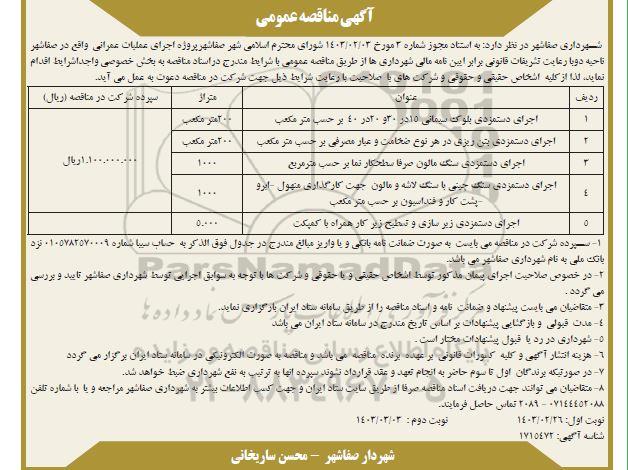 آگهی مناقصه عمومی
شهرداری صفاشهر در نظر دارد: به استناد مجوز شماره ۳ مورخ ۱۴۰۳/۰۲/۰۳ شورای محترم اسلامی شهر صفاشهرپروژه اجرای عملیات عمرانی واقع در صفاشهر
ناحیه دوبا رعایت تشریفات قانونی برابر آیین نامه مالی شهرداری ها از طریق مناقصه عمومی با شرایط مندرج دراسناد مناقصه به بخش خصوصی واجدشرایط اقدام
نماید، لذا از کلیه اشخاص حقیقی و حقوقی و شرکت های با صلاحیت با رعایت شرایط ذیل جهت شرکت در مناقصه دعوت به عمل می آید.
ردیف عنوان متراژ سپرده شرکت در مناقصه (ریال)
۱ اجرای دستمزدی بلوک سیمانی ۱۵در ۳۰و ۲۰در ۴۰ بر حسب متر مکعب ۲۰۰متر مکعب
۲ اجرای دستمزدی بتن ریزی در هر نوع ضخامت و عیار مصرفی بر حسب متر مکعب ۲۰۰متر مکعب
۳ اجرای دستمزدی سنگ مالون صرفا سطحکار نما بر حسب مترمربع ۱۰۰۰ ۱.۱۰۰.۰۰۰.۰۰۰ریال
۴ اجرای دستمزدی سنگ چینی با سنگ لاشه و مالون جهت کارگذاری منهول -ابرو
-پشت کار و فنداسیون بر حسب متر مکعب ۱۰۰۰
۵ اجرای دستمزدی زیر سازی و تسطیح زیر کار همراه با کمپکت ۵.۰۰۰
۱- سپرده شرکت در مناقصه می بایست به صورت ضمانت نامه بانکی و یا واریز مبالغ مندرج در جدول فوق الذکر به حساب سیبا شماره ۰۱۰۵۷۸۲۵۷۰۰۰۹ نزد
بانک ملی به نام شهرداری صفاشهر می باشد.
۲- در خصوص صلاحیت اجرای پیمان مذکور توسط اشخاص حقیقی و یا حقوقی و شرکت ها با توجه به سوابق اجرایی توسط شهرداری صفاشهر تایید و بررسی
می گردد .
۳- متقاضیان می بایست پیشنهاد و ضمانت نامه و اسناد مناقصه را از طریق سامانه ستاد ایران بارگزاری نماید.
۴- مدت قبولی و بازگشایی پیشنهادات بر اساس تاریخ مندرج در سامانه ستاد ایران می باشد
۵- شهرداری در رد یا قبول پیشنهادات مختار است .
۶- هزینه انتشار آگهی و کلیه کسورات قانونی بر عهده برنده مناقصه می باشد و مناقصه به صورت الکترونیکی در سامانه ستاد ایران برگزار می گردد
۷- در صورتیکه برندگان اول تا سوم حاضر به انجام تعهد و عقد قرارداد نشوند سپرده انها به ترتیب به نفع شهرداری ضبط خواهد شد.
۸- متقاضیان می توانند جهت دریافت اسناد مناقصه صرفا از طریق سایت ستاد ایران و جهت کسب اطلاعات بیشتر به شهرداری صفاشهر مراجعه و یا با شماره تلفن
۰۷۱۴۴۴۵۲۰۸۸ - ۲۰۸۹ تماس حاصل فرمایند.
نوبت اول: ۱۴۰۳/۰۲/۲۶ نوبت دوم : ۱۴۰۳/۰۳/۰۳
شناسه آگهی: ۱۷۱۵۴۷۲
شهردار صفاشهر - محسن ساریخانی
ParsNamadData
پایگاه اطلاع رسانی مناقصه و مزایده